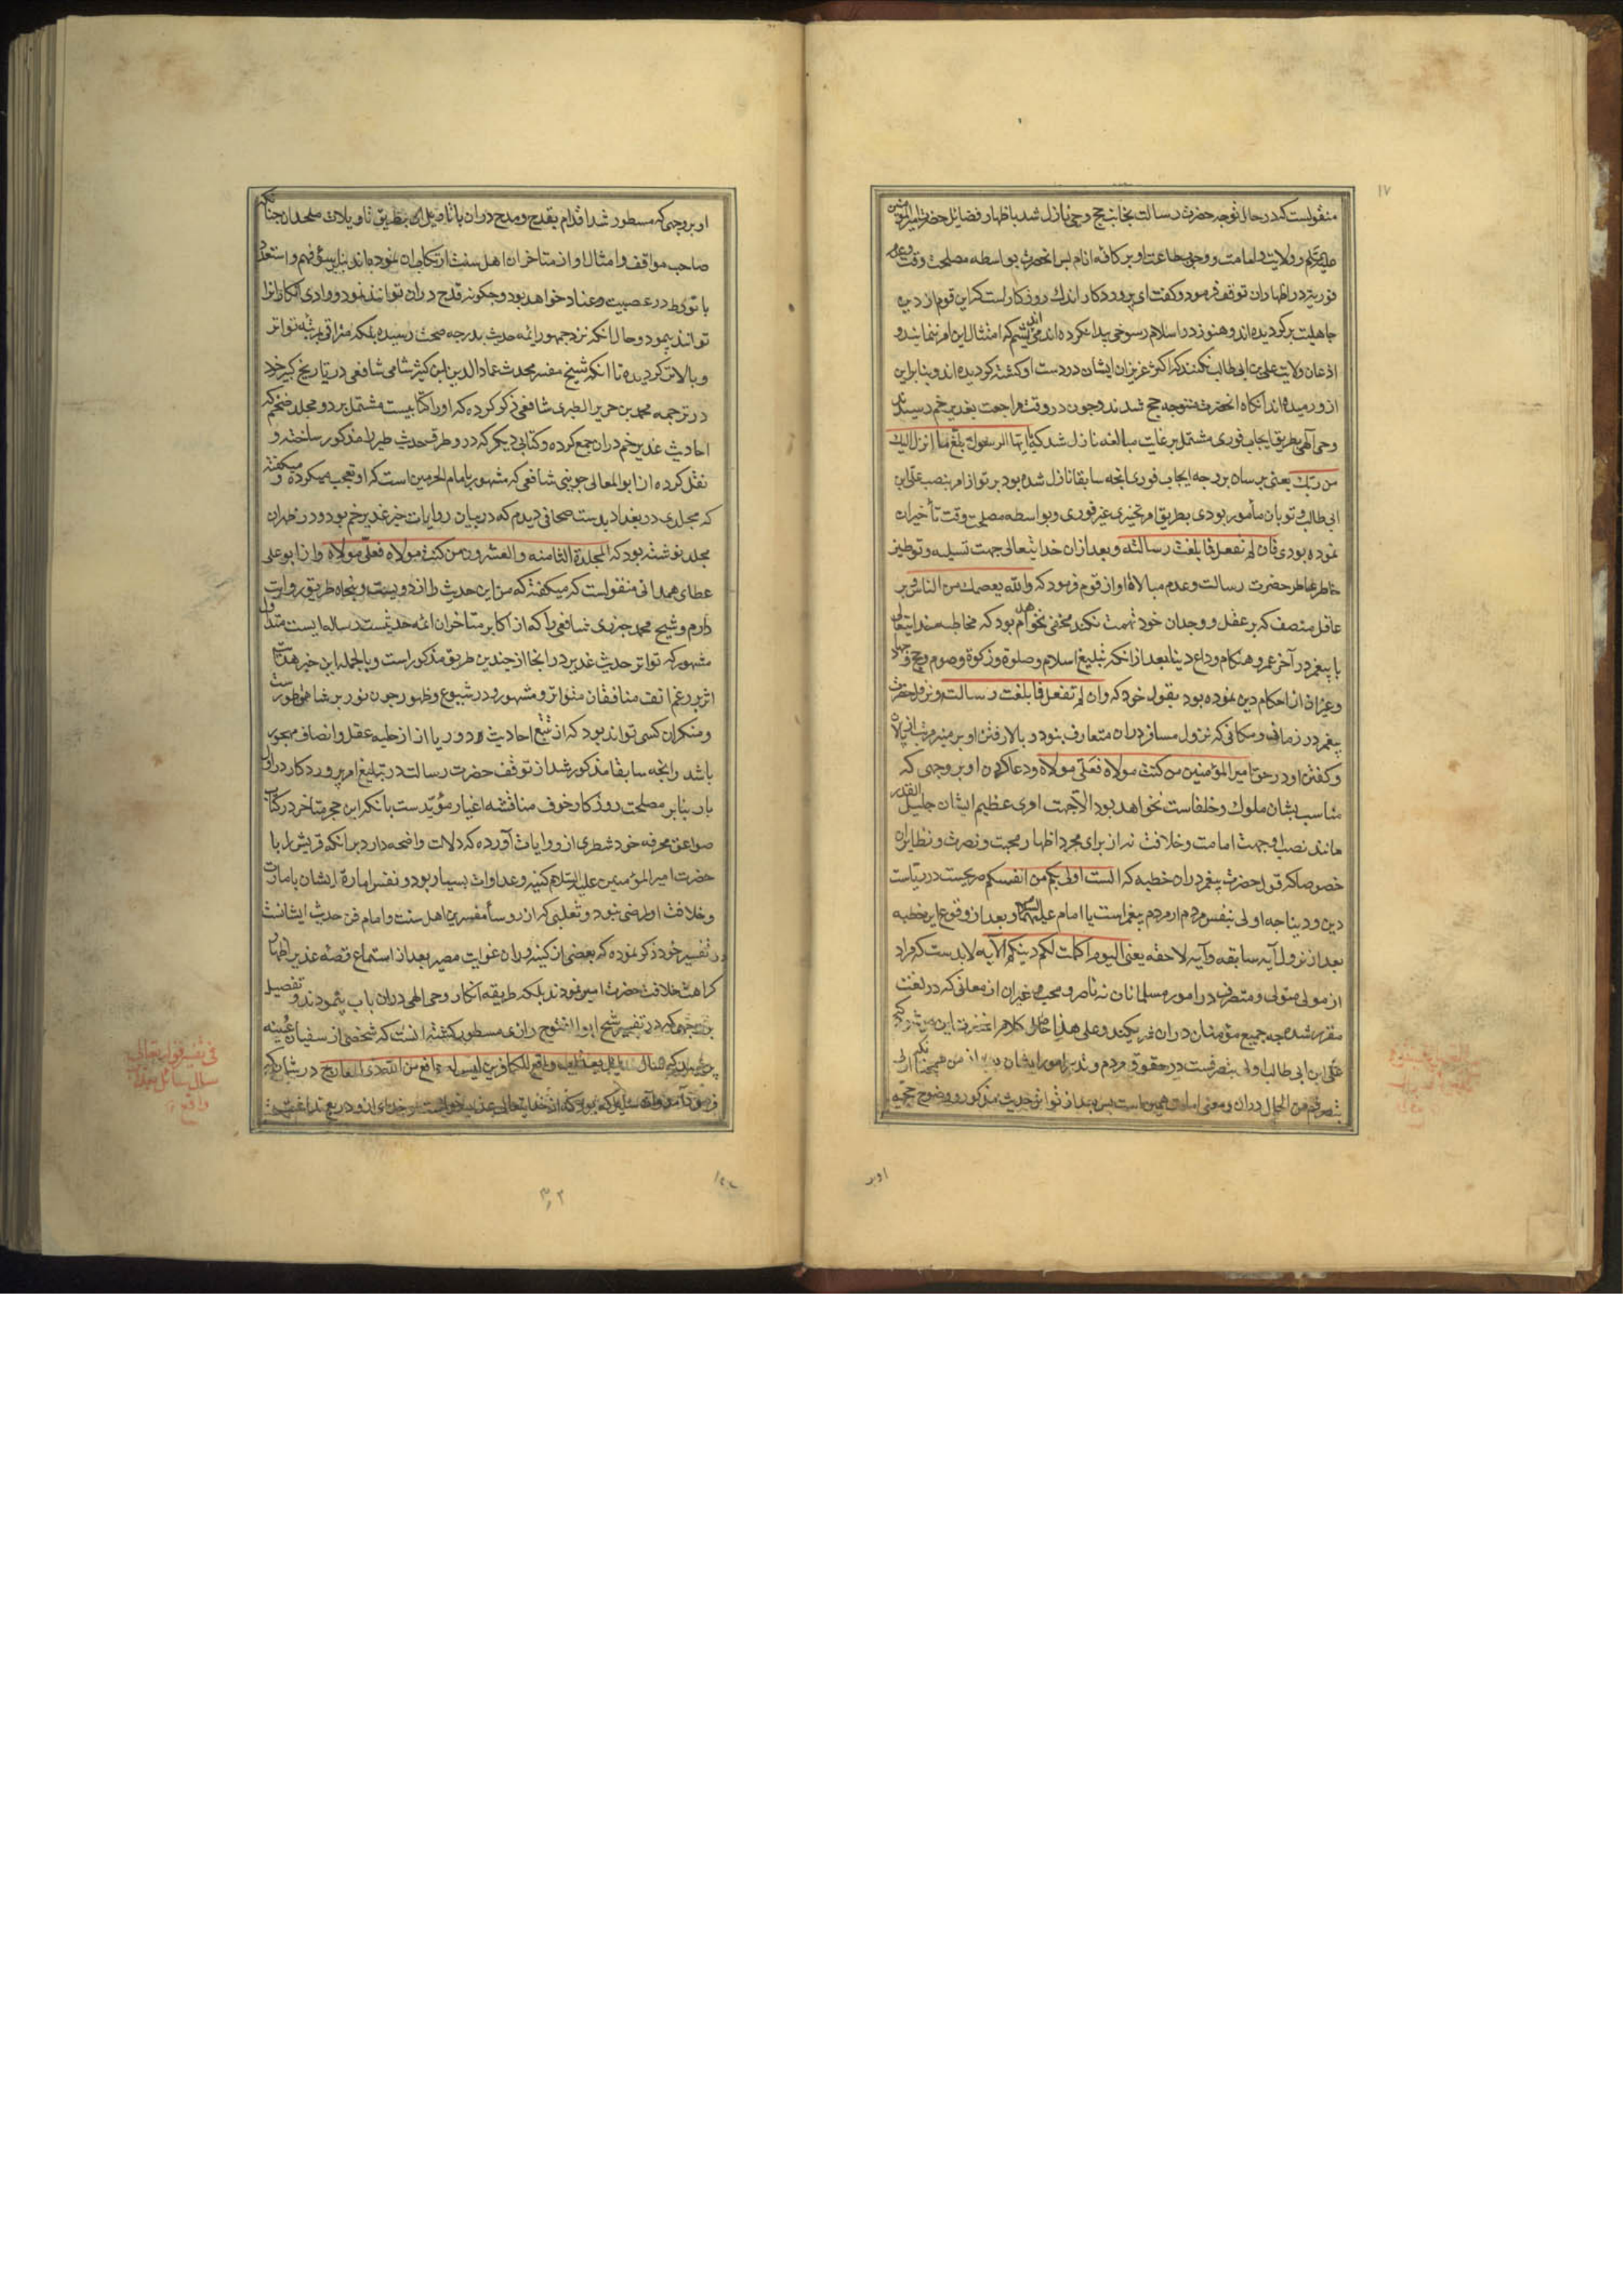 ١٧
منقولست که در حال توجه حضرت رسالت بجانب حج وحی نازل شد باظهار فضایل حضرت امیرالمؤمنین
علیه السلم و ولایت و امامت و وجوب طاعت او بر کافه انام پس آنحضرت بواسطه مصلحت وقت و عدم
فوریة در اظهار ان توقف فرمود و کفت ای پروردکار اندک روزکار است که این قوم از دین
جاهلیت برکردیده اند و هنوز در اسلام رسوخی پیدا نکرده اند می اندیشم که امتثال این امر ننمایند و
اذعان ولایت علی بن ابی طالب نکنند که اکثر عزیزان ایشان در دست او کشته کردیده اند و بنابراین
ازو رمیده اند انکاه انحضرت متوجه حج شدند و چون در وقت مراجعت بغدیر خم رسیدند
وحی الهی بطریق ایجاب فوری مشتمل بر غایت مبالغه نازل شد که یا ایها الرسول بلغ ما انزل الیک
من ربک یعنی برسان بر وجه ایجاب فوری انچه سابقا نازل شده بود بر تو از امر بنصب علی ابن
ابی طالب و تو بان مأمور بودی بطریق امر تخییری غیر فوری و بواسطه مصلحت وقت تأخیر ان
نموده بودی فان لم تفعل فما بلغت رسالته و بعد ازان خدایتعالی جهت تسلیه و توطین
خاطر عاطر حضرت رسالت و عدم مبالاة او از قوم فرمود که والله یعصمک من الناس و بر
عاقل منصف که بر عقل و وجدان خود تهمت نکند مخفی نخواهد بود که مخاطبه خدایتعالی
با پیغمبر در آخر عمر و هنکام وداع دنیا بعد از انکه تبلیغ اسلام و صلوة و زکوة و صوم و حج و جهاد
و غیر ان از احکام دین نموده بود بقول خود که وان لم تفعل فما بلغت رسالته و نزول حضرت
پیغمبر در زمان و مکانی که نزول مسافر دران متعارف نبود و بالا رفتن او بر منبر مرتب از پالان
و کفتن او در حق امیر المؤمنین من کنت مولاه فعلی مولاه و دعا کردن او بر وجهی که
مناسب بشان ملوک و خلفاست نخواهد بود الا جهت امری عظیم الشان جلیل القدر
مانند نصب او جهت امامت و خلافت نه از برای مجرد اظهار محبت و نصرت و نظایر ان
خصوصا که قول حضرت پیغمبر دران خطبه که الست اولی بکم من انفسکم صریحست در ریاست
دین و دنیا چه اولی بنفس مردم از مردم پیغمبر است یا امام علیهما السلام و بعد از وقوع این خطبه
بعد از نزول آیه سابقه و آیه لاحقه یعنی الیوم اکملت لکم دینکم الآیه لابد ست که مراد
از مولی متولی و متصرف در امور مسلمانان نه ناصر و محب و غیر ان از معانی که در لغت
مقرر شده چه جمیع مؤمنان دران شریکند و علی هذا حاصل کلام
علی ابن ابی طالب اولی بتصرفست در حقوق مردم و تدبیر امور ایشان بعد از من همچنانکه
دران و معنی امامت همین است پس بعد از تواتر حدیث مذکور و وضوح حجیه
اوبر
او بر وجهی که مسطور شد اقدام بقدح و مدح دران یا تاصیل ان بطریق تاویلات ملحدان چنانکه
صاحب مواقف و امثال او از متاخران اهل سنت ارتکاب ان نموده اند بنابر سؤ فهم و استعداد
یا تورط در عصبیت و عناد خواهد بود و چکونه قدح دران توانند نمود و وادی انکار انرا
توانند پیمود و حال انکه نزد جمهور ائمه حدیث بدرجه صحت رسیده بلکه مترقی بمرتبه تواتر
و بالاتر کردیده تا انکه شیخ مفسر محدث عماد الدین ابن کثیر شامی شافعی در تاریخ کبیر خود
در ترجمه محمد بن جریر الطبری شافعی ذکر کرده که او را کتابیست مشتمل بر دو مجلد ضخیم که
احادیث غدیر خم دران جمع کرده و کتابی دیکر که درو طرق حدیث طیر را مذکور ساخته و
نقل کرده از ابو المعالی جوینی شافعی که مشهور بامام الحرمین است که او تعجب میکرده و میکفته
که مجلدی در بغداد بدست صحافی دیدم که در بیان روایات خبر غدیر خم بود و در ظهر ان
مجلد نوشته بود که المجلدة الثامنه والعشرون من کنت مولاه فعلی مولاه و از ابو علی
عطای همدانی منقولست که میکفته که من این حدیث را از دویست و پنجاه طریق روایت
دارم و شیخ محمد جزری شافعی را که از اکابر متاخران ائمه حدیثست رساله ایست متداول
مشهور که تواتر حدیث غدیر در انجا از چندین طریق مذکور است و بالجمله این خبر هدایت
اثر بر رغم انف منافقان متواتر و مشهور و در شیوع و ظهور چون نور بر شاهق طورست
و منکر ان کسی تواند بود که از تتبع احادیث دور یا از از حلیه عقل و انصاف مهجور
باشد وانچه سابقا مذکور شد از توقف حضرت رسالت در تبلیغ امر پروردکار در اول
بار بنابر مصلحت روزکار و خوف مناقشه اغیار مؤیدست بانکه ابن حجر متاخر در کتاب
صواعق محرقه خود شطری از روایات آورده که دلالت واضحه دارد بر انکه قریش را با
حضرت امیر المؤمنین علیه السلام کینه و عداوت بسیار بود و نفس امارة ایشان بامارت
و خلافت او راضی نبود و ثعلبی که از روسأ مفسرین اهل سنت و امام فن حدیث ایشانست
در تفسیر خود ذکر نموده که بعضی از کینه وران غوایت مصیر بعد از استماع قصه غدیر اظهار
کراهت خلافت حضرت امیر نمودند بلکه طریقه انکار وحی الهی دران باب پیمودند و تفصیل
بر وجهی که در تفسیر شیخ ابو الفتوح رازی مسطور کشته انست که شخصی از سفیان عیینه
پرسید که سأل سائل بعذاب واقع للکافرین لیس له دافع من الله ذی المعارج در شان که
فی تفسیر قوله تعالی
سأل سائل بعذاب
واقع